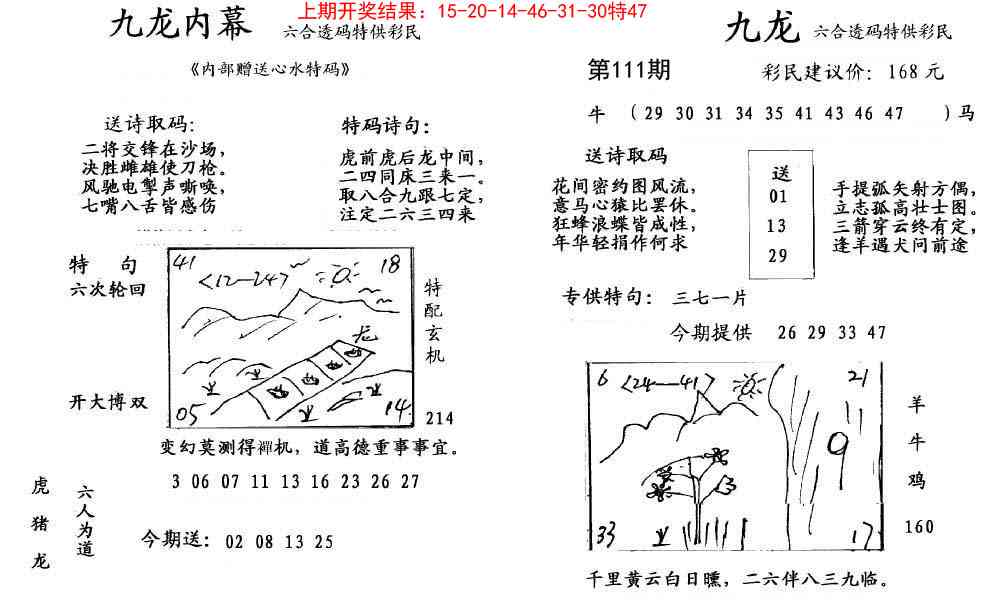 上期开奖结果：15-20-14-46-31-30特47
九龙内幕 六合透码特供彩民
《内部赠送心水特码》
送诗取码：
二将交锋在沙场，
决胜雌雄使刀枪。
风驰电掣声嘶唤，
七嘴八舌皆感伤
特码诗句：
虎前虎后龙中间，
二四同床三来一。
取八合九跟七定，
注定二六三四来
特 句
六次轮回
开大博双
41
<12—24>
18
龙
05
14
特配玄机
214
变幻莫测得禪机，道高德重事事宜。
3 06 07 11 13 16 23 26 27
虎
猪
龙
六人为道
今期送：02 08 13 25
九龙 六合透码特供彩民
第111期
彩民建议价：168元
牛 （29 30 31 34 35 41 43 46 47 ）马
送诗取码
花间密约图风流，
意马心猿比罢休。
狂蜂浪蝶皆成性，
年华轻捐作何求
送
01
13
29
手提弧矢射方偶，
立志孤高壮士图。
三箭穿云终有定，
逢羊遇犬问前途
专供特句：三七一片
今期提供 26 29 33 47
6
<24—41>
21
11
9
33
17
羊
牛
鸡
160
千里黄云白日曛，二六伴八三九临。